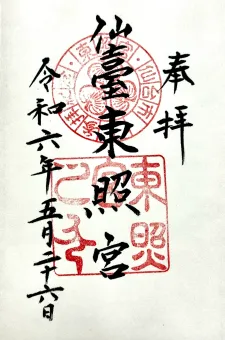 奉拝
仙臺東照宮
令和六年五月二十六日
東照宮
仙台市